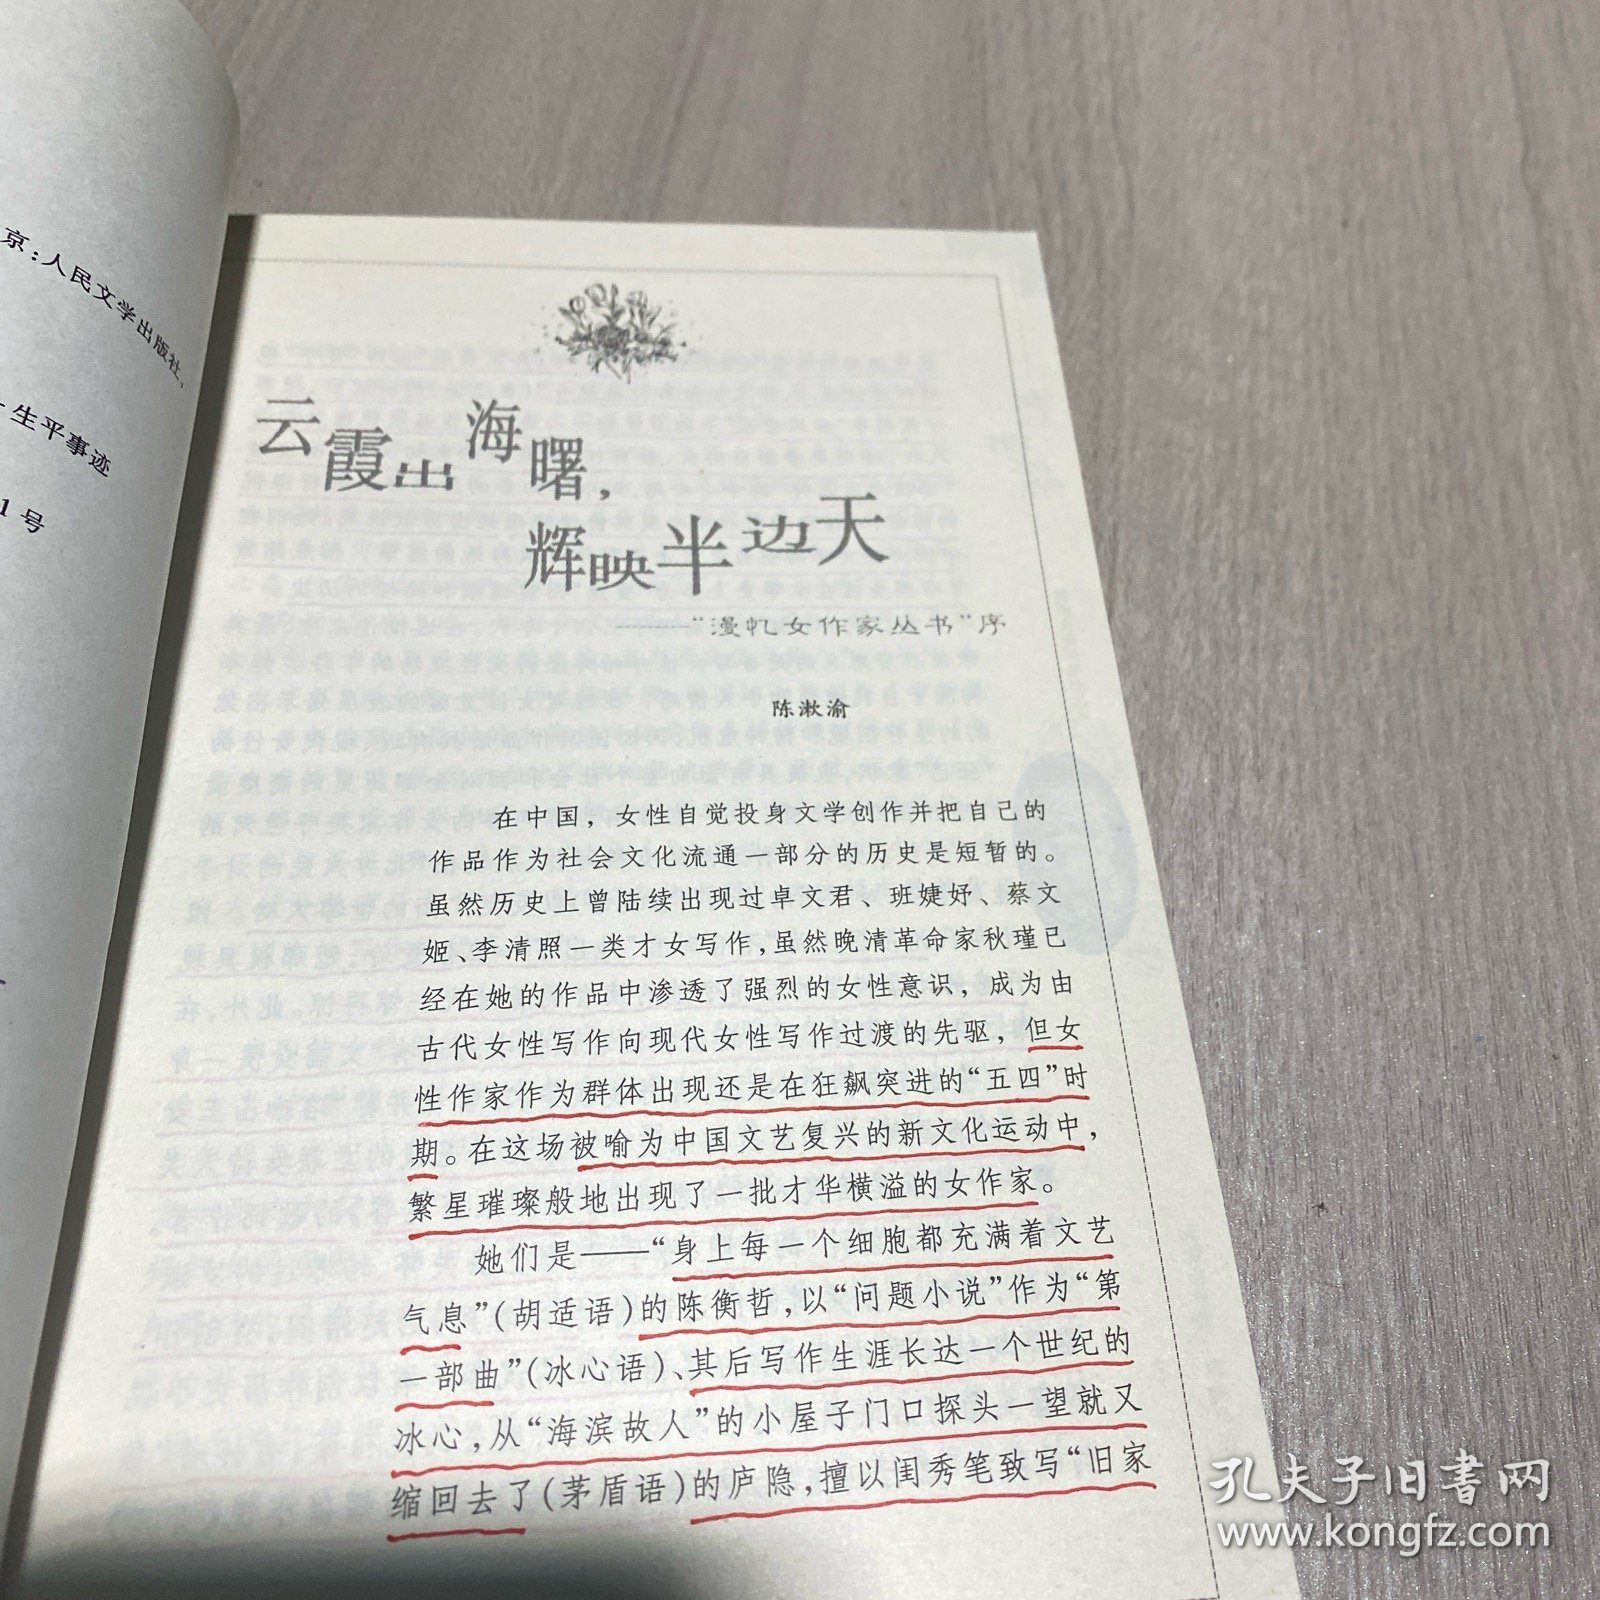 京：人民文学出版社、
生平事迹
1号
云霞出海曙，
辉映半边天
——“漫忆女作家丛书”序
陈漱渝
在中国，女性自觉投身文学创作并把自己的
作品作为社会文化流通一部分的历史是短暂的。
虽然历史上曾陆续出现过卓文君、班婕妤、蔡文
姬、李清照一类才女写作，虽然晚清革命家秋瑾已
经在她的作品中渗透了强烈的女性意识，成为由
古代女性写作向现代女性写作过渡的先驱，但女
性作家作为群体出现还是在狂飙突进的“五四”时
期。在这场被喻为中国文艺复兴的新文化运动中，
繁星璀璨般地出现了一批才华横溢的女作家。
她们是——“身上每一个细胞都充满着文艺
气息”(胡适语)的陈衡哲，以“问题小说”作为“第
一部曲”(冰心语)、其后写作生涯长达一个世纪的
冰心，从“海滨故人”的小屋子门口探头一望就又
缩回去了(茅盾语)的庐隐，擅以闺秀笔致写“旧家
孔夫子旧书网
www.kongfz.com